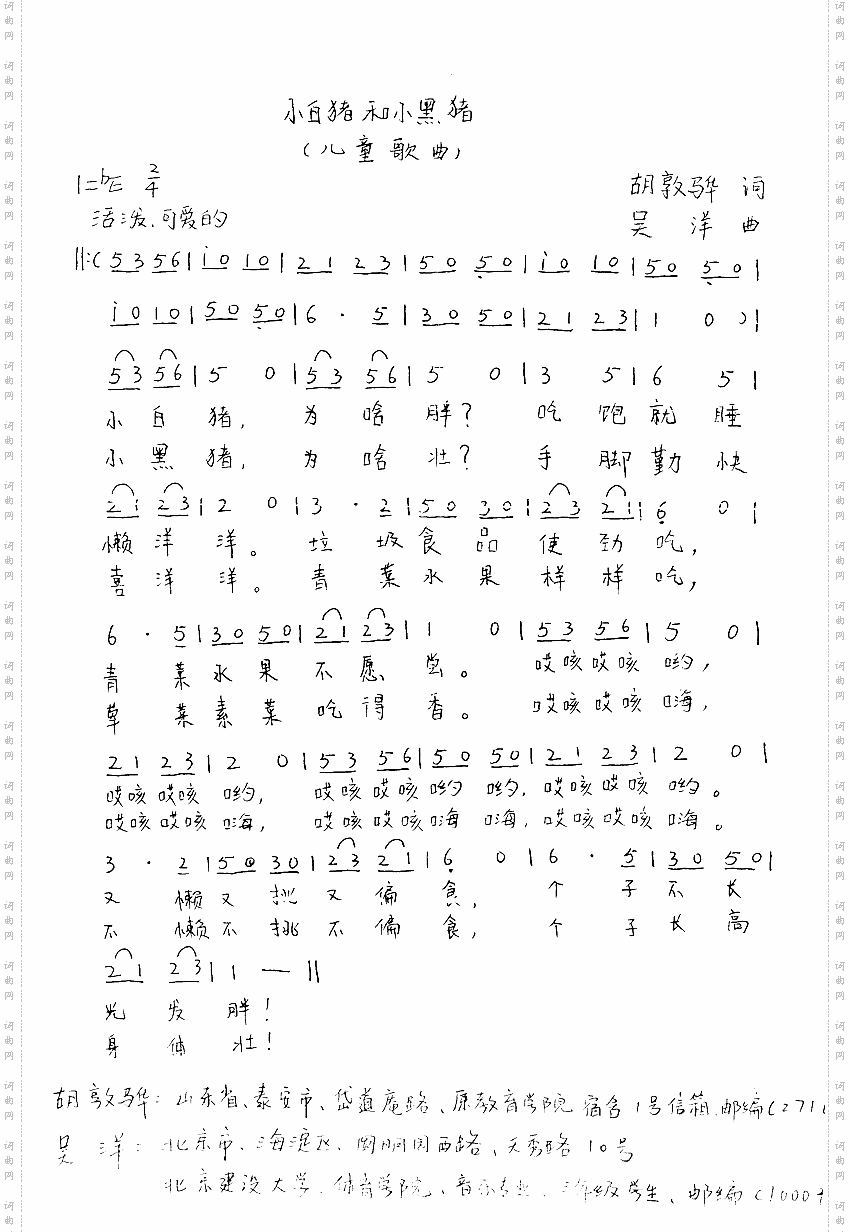 小白猪和小黑猪
(儿童歌曲)
1=bE 2/4
胡敦骅 词
活泼.可爱的
吴 洋 曲
‖:( 5 3 5 6 | i 0 1 0 | 2 1 2 3 | 5 0 5 0 | i 0 1 0 | 5 0 5 0 |
i 0 1 0 | 5 0 5 0 | 6 · 5 | 3 0 5 0 | 2 1 2 3 | 1 0 ) |
5 3 5 6 | 5 0 | 5 3 5 6 | 5 0 | 3 5 | 6 5 |
小 白 猪, 为 啥 胖? 吃 饱 就 睡
小 黑 猪, 为 啥 壮? 手 脚 勤 快
2 1 2 3 | 2 0 | 3 · 2 | 5 0 3 0 | 2 3 2 1 | 6 0 |
懒 洋 洋。 垃 圾 食 品 使 劲 吃,
喜 洋 洋。 青 菜 水 果 样 样 吃,
6 · 5 | 3 0 5 0 | 2 1 2 3 | 1 0 | 5 3 5 6 | 5 0 |
青 菜 水 果 不 愿 尝。 哎咳哎咳 哟,
草 菜 素 菜 吃 得 香。 哎咳哎咳 嗨,
2 1 2 3 | 2 0 | 5 3 5 6 | 5 0 5 0 | 2 1 2 3 | 2 0 |
哎咳哎咳 哟, 哎咳哎咳哟 哟, 哎咳哎咳 哟。
哎咳哎咳 嗨, 哎咳哎咳嗨 嗨, 哎咳哎咳 嗨。
3 · 2 | 5 0 3 0 | 2 3 2 1 | 6 0 | 6 · 5 | 3 0 5 0 |
又 懒 又 挑 又 偏 食, 个 子 不 长
不 懒 不 挑 不 偏 食, 个 子 长 高
2 1 2 3 | 1 — ‖
光 发 胖!
身 体 壮!
胡敦骅: 山东省、泰安市、岱道庵路、原教育学院 宿舍1号信箱.邮编(271
吴 洋: 北京市、海淀区、圆明园西路、天秀路10号
北京建设大学、体育学院、音乐专业、三年级学生、邮编(1000